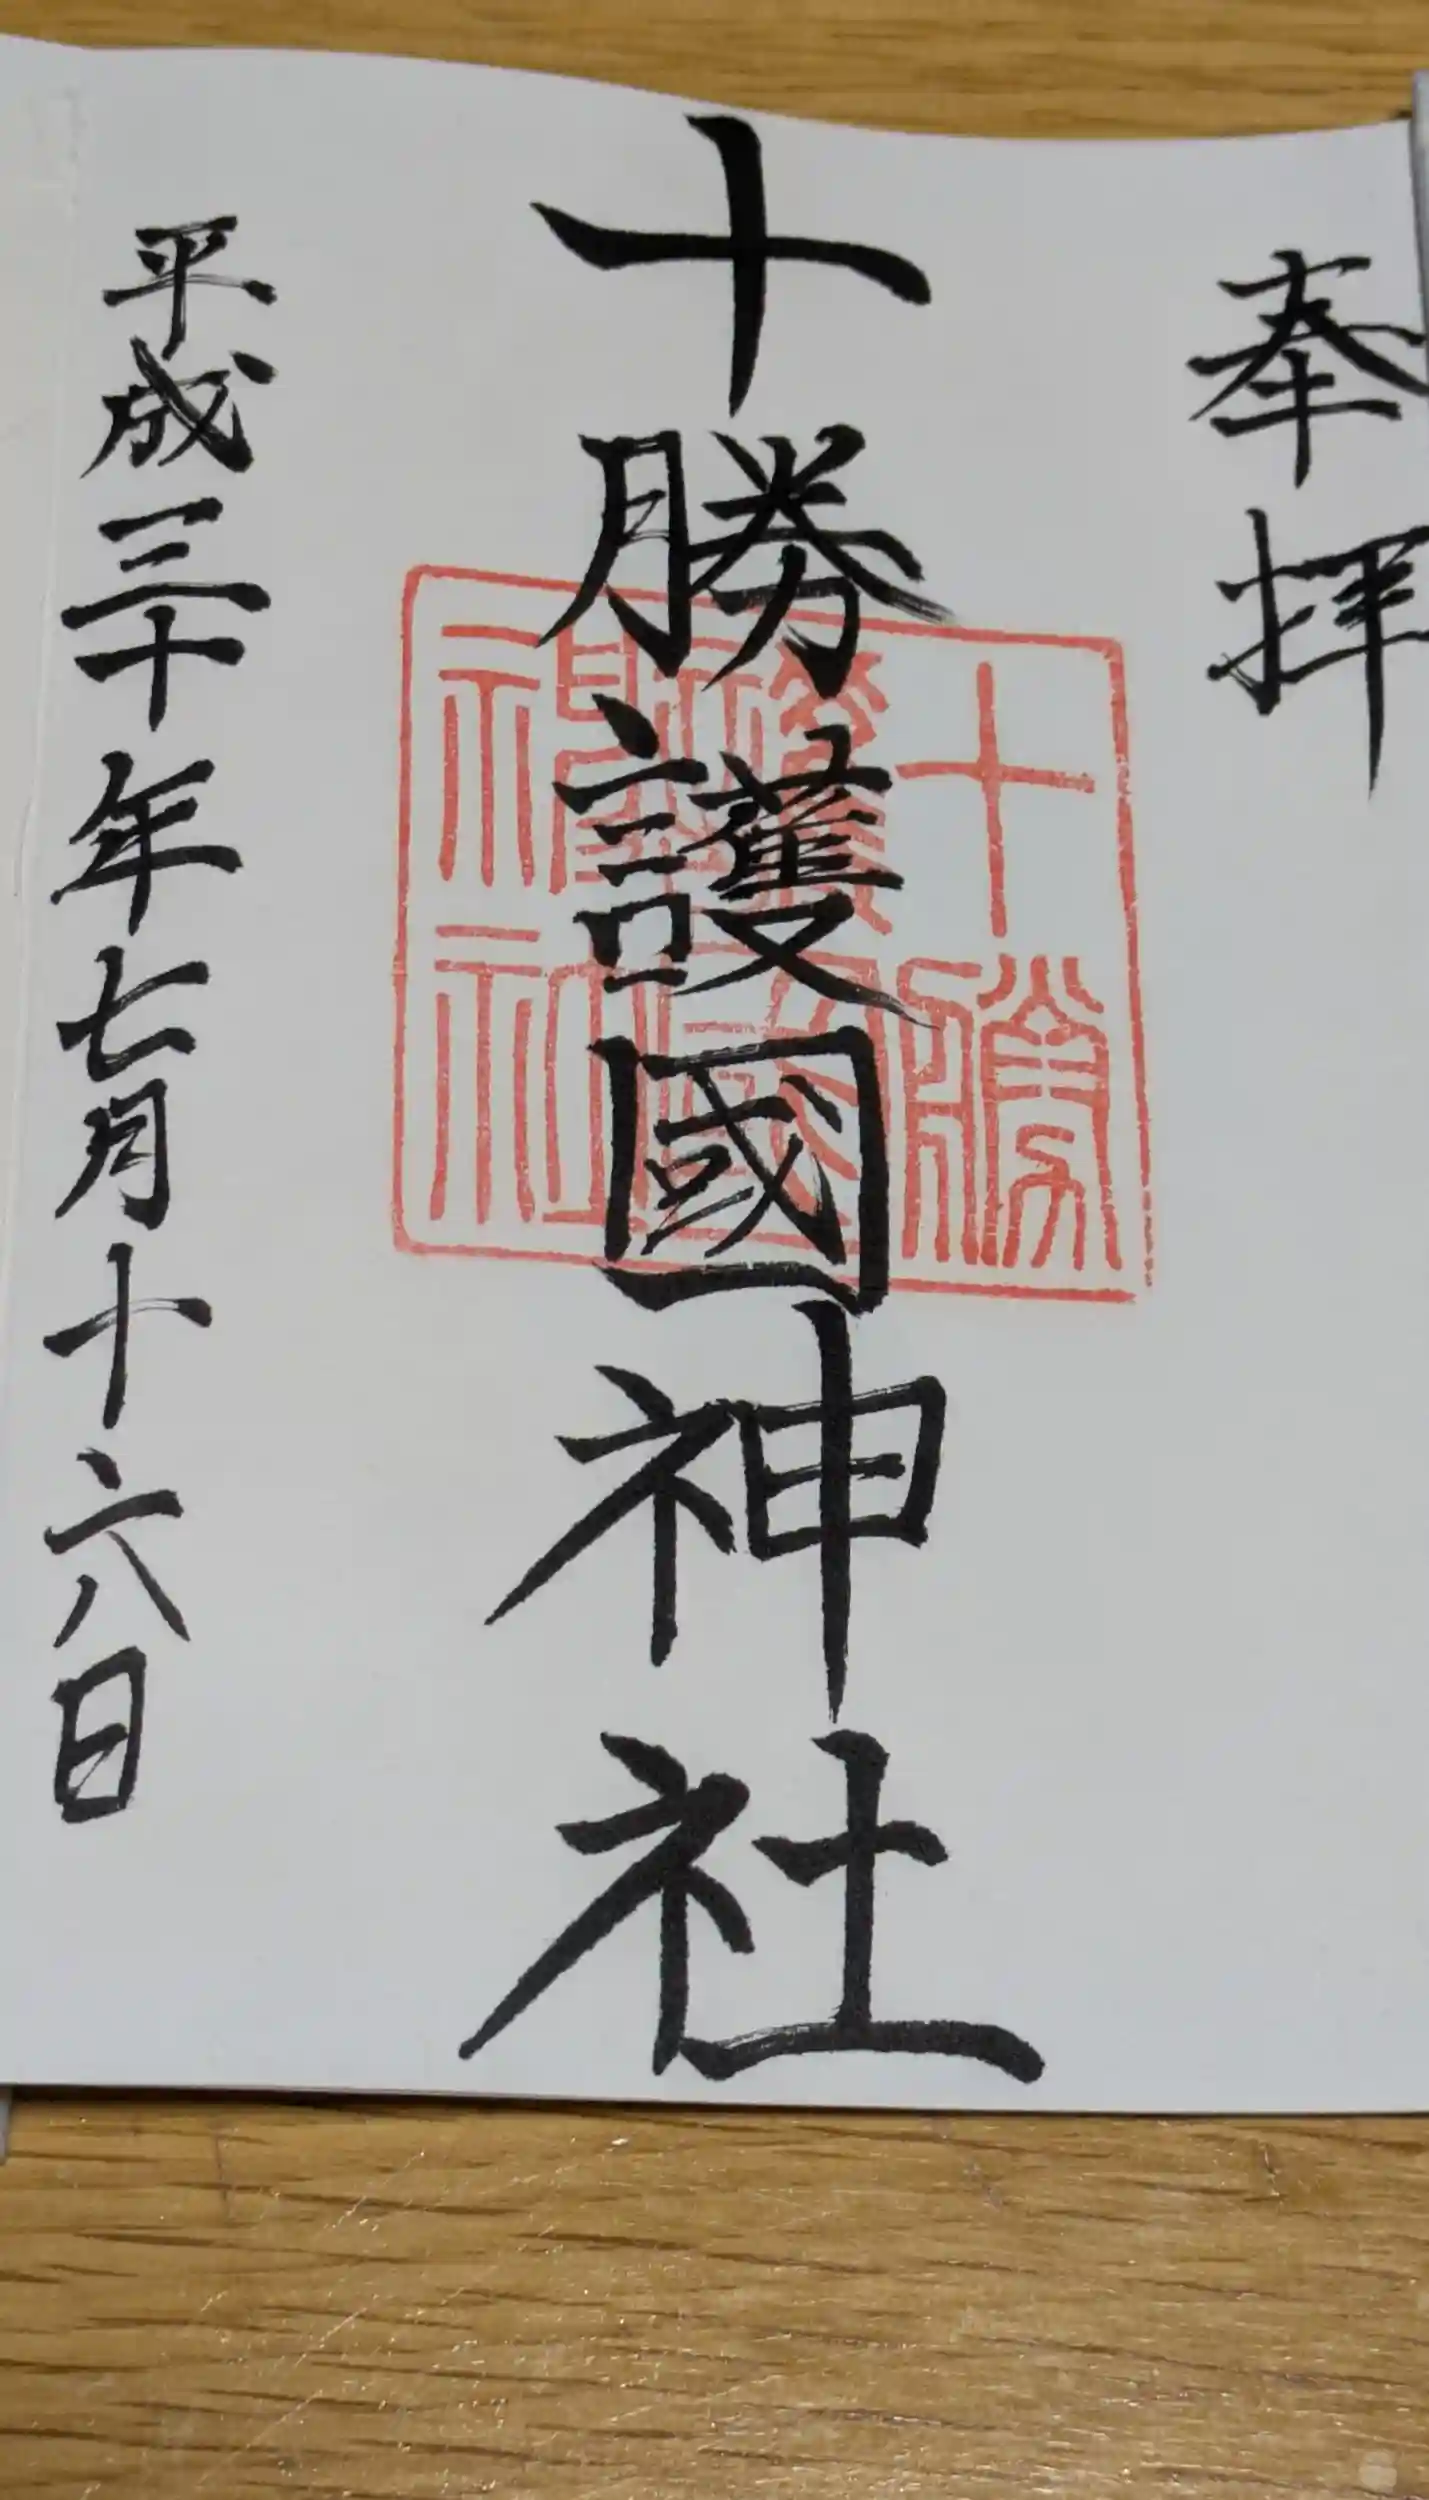 奉拝
十勝護國神社
十勝
護國
神社
平成三十年七月十六日